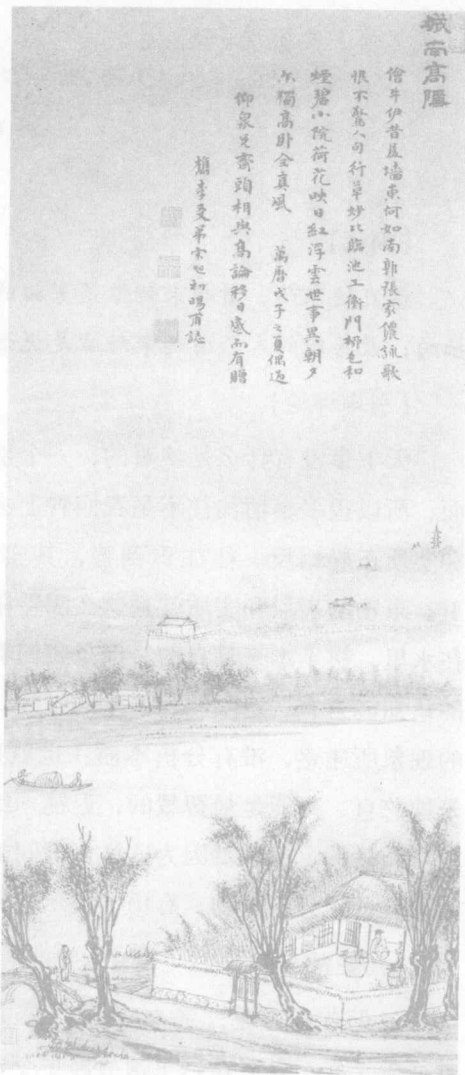 城南高隱
儈牛伊昔居墻東何如南郭張家儂詠歌
恨不驚人句行草妙比臨池工衡門柳色和
煙碧小院荷花映日紅浮雲世事異朝夕
尔獨高卧全真風 萬曆戊子之夏偶過
仰泉兄齋頭相與高論移日感而有贈
弟 初暘甫誌